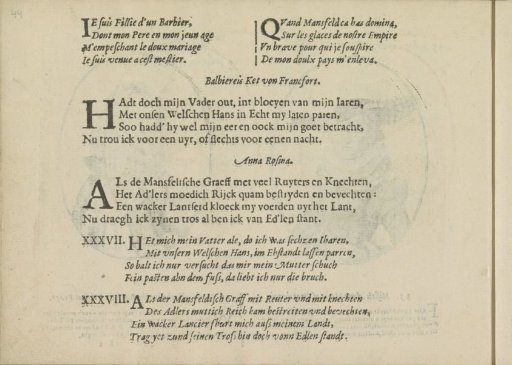 44
IE suis Fillie d'un Barbier,
Dont mon Pere en mon jeun age
M'empeschant le doux mariage
Ie suis venue a cest mestier.
QVand Mansfeld ca has domina,
Sur les glaces de nostre Empire
Vn brave pour qui je souspire
De mon doulx pays m'enleva.
Balbiereüs Ket von Francfort.
HAdt doch mijn Vader out, int bloeyen van mijn Iaren,
Met onsen Welschen Hans in Echt my laten paren,
Soo hadd' hy wel mijn eer en oock mijn goet betracht,
Nu trou ick voor een uyr, of slechts voor eenen nacht.
Anna Rosina.
ALs de Mansfeltsche Graeff met veel Ruyters en Knechten,
Het Ad'lers moedich Rijck quam bestryden en bevechten:
Een wacker Lantserd kloeck my voerden uyt het Lant,
Nu draegh ick zynen tros al ben ick van Ed'len stant.
XXXVII. HEt mich mein Vatter ale, do ich was sechzen Iharen,
Mit unsern Welschen Hans, im Ehstandt lassen parren,
So balt ich nur versucht das mir mein Mutter schuch
Fein pasten ahn dem fuss, da liebt ich nur die bruch.
XXXVIII. ALs der Mansfeldisch Graff mit Reuter vnd mit knechten
Des Adlers muttich Reich kam bestreiten vnd bevechten,
Ein wacker Lancier fhurt mich auss meinem Landt,
Trag yet zund seinen Tross bin doch vonn Edlen standt.